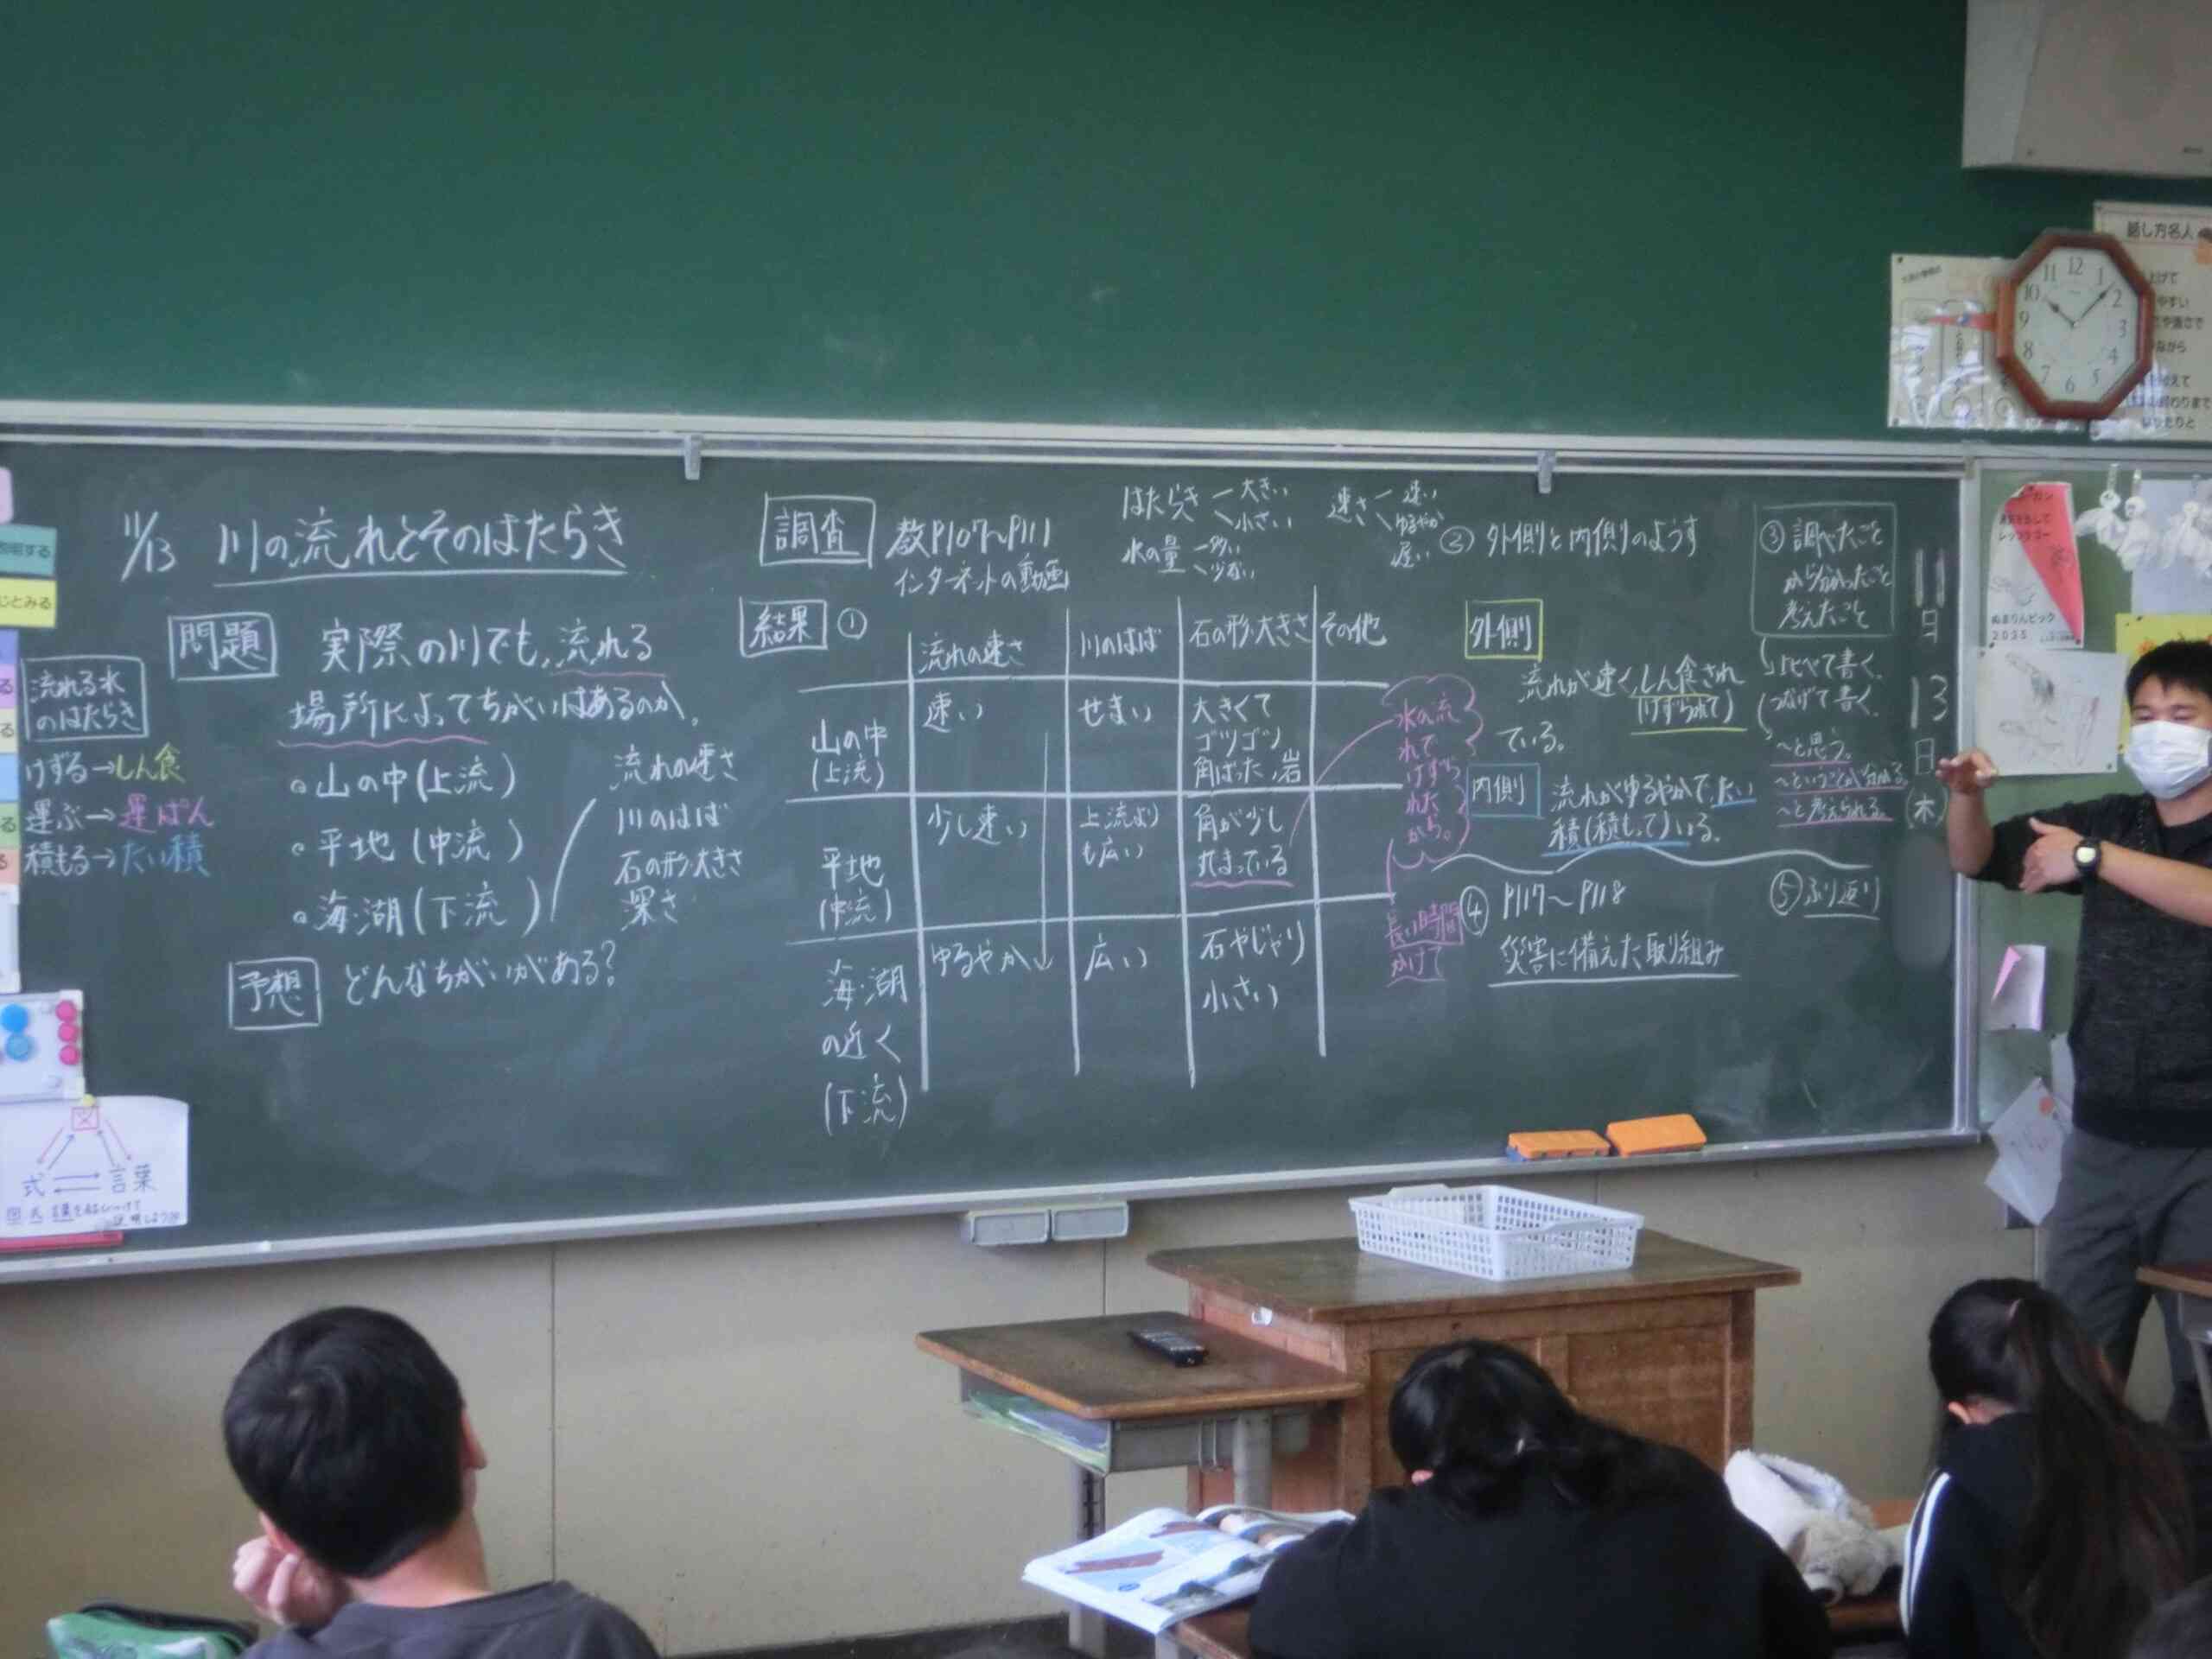 11/13 川の流れとそのはたらき
流れる水
のはたらき
けずる→しん食
運ぶ→運ぱん
積もる→たい積
問題 実際の川でも、流れる
場所によってちがいはあるのか。
・山の中(上流)
・平地(中流)
・海・湖(下流)
流れの速さ
川のはば
石の形・大きさ
深さ
予想 どんなちがいがある?
調査 教P107~P111
インターネットの動画
はたらき 大きい
小さい
水の量 多い
少ない
速さ 速い
ゆるやか
遅い
結果 ①
流れの速さ 川のはば 石の形・大きさ その他
山の中
(上流)
速い せまい 大きくて
ゴツゴツ
角ばった、岩
平地
(中流)
少し速い 上流より
も広い
角が少し
丸まっている
海・湖
の近く
(下流)
ゆるやか 広い 石やじゃり
小さい
水の流
れで
けずら
れた
から。
長い時間
かけて
② 外側と内側のようす
外側
流れが速く、しん食され
(けずられて)
ている。
内側 流れがゆるやかで、たい
積(積もって)いる。
③ 調べたこと
から分かったこと
考えたこと
比べて書く。
つなげて書く。
~と思う。
~ということが分かる。
~と考えられる。
④ P117~P118
災害に備えた取り組み
⑤ ふり返り
11
月
13
日
(木)
図
式 言葉
話し方名人
12 1 2 3 4 5 6 7 8 9 10 11